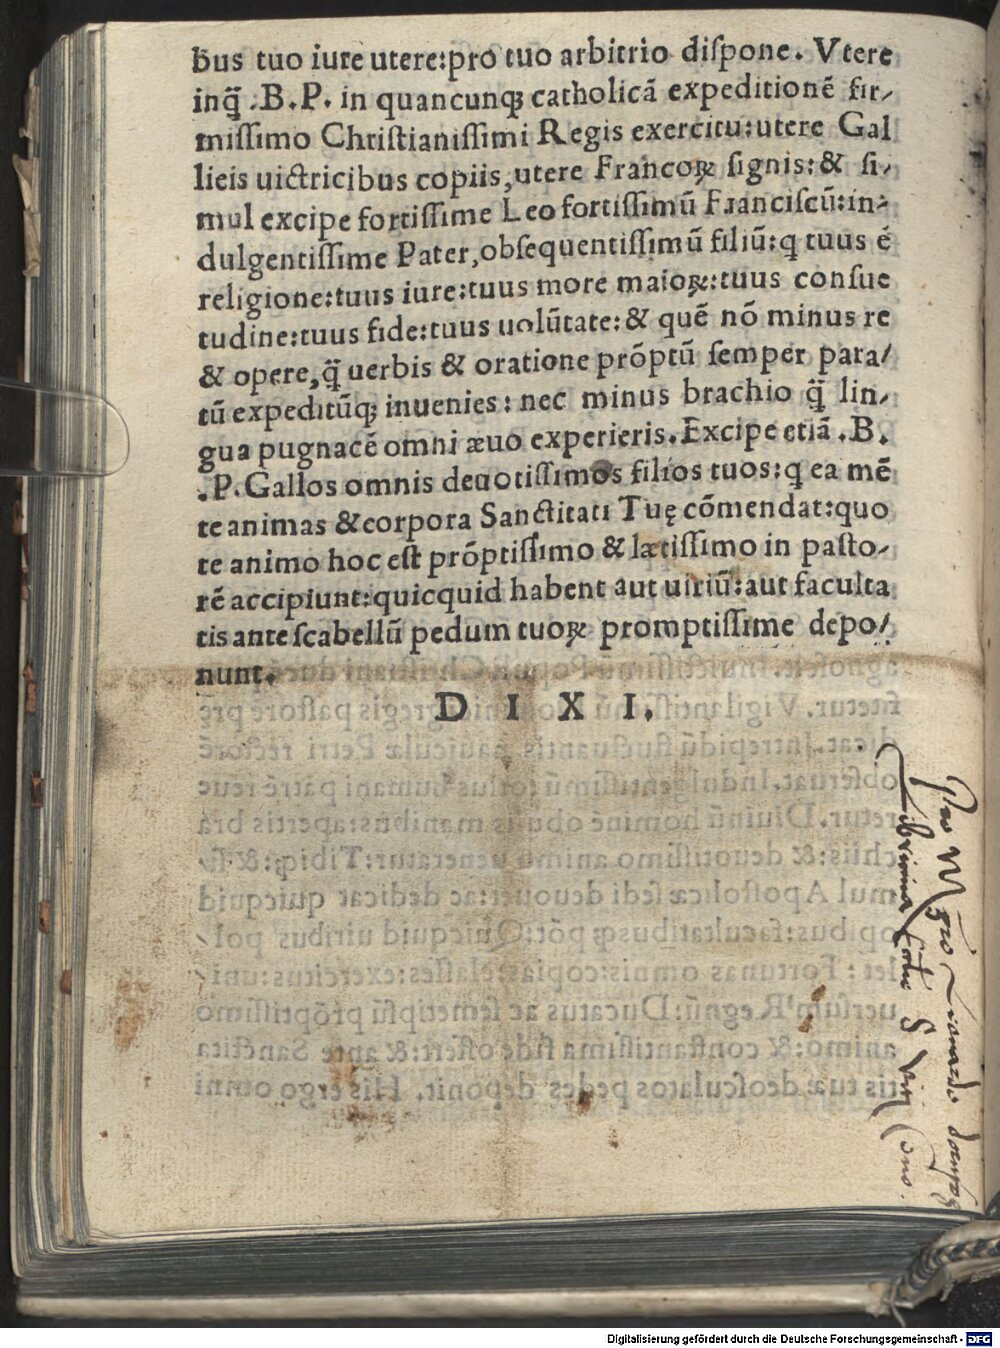 bus tuo iure utere:pro tuo arbitrio diſpone. Vtere
inq̃ .B.P. in quancunqꝫ catholicã expeditionẽ fir⸗
miſſimo Chriſtianiſſimi Regis exercitu:utere Gal
licis uictricibus copiis,utere Francoꝝ ſignis:& ſi⸗
mul excipe fortiſſime Leo fortiſſimũ Franciſcũ:in⸗
dulgentiſſime Pater,obſequentiſſimũ filiũ:q tuus ẽ
religione:tuus iure:tuus more maioꝝ:tuus conſue
tudine:tuus fide:tuus uolũtate:& quẽ nõ minus re
& opere,q̃ uerbis & oratione prõptũ ſemper para/
tũ expeditũqꝫ inuenies: nec minus brachio q̃ lin⸗
gua pugnacẽ omni æuo experieris.Excipe etiã .B.
.P. Gallos omnis deuotiſſimos filios tuos:q ea mẽ
te animas & corpora Sanctitati Tuę cõmendat:quo
te animo hoc eſt prõptiſſimo & lætiſſimo in paſto⸗
rẽ accipiunt:quicquid habent aut uiriũ:aut faculta
tis ante ſcabellũ pedum tuoꝝ promptiſſime depo/
nunt.
D I X I.
Digitalisierung gefördert durch die Deutsche Forschungsgemeinschaft - DFG